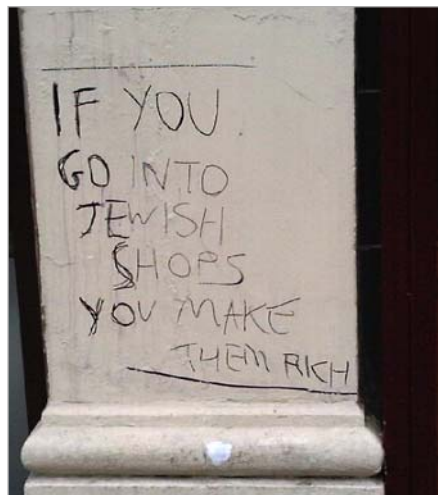 IF YOU
GO INTO
JEWISH
SHOPS
YOU MAKE
THEM RICH